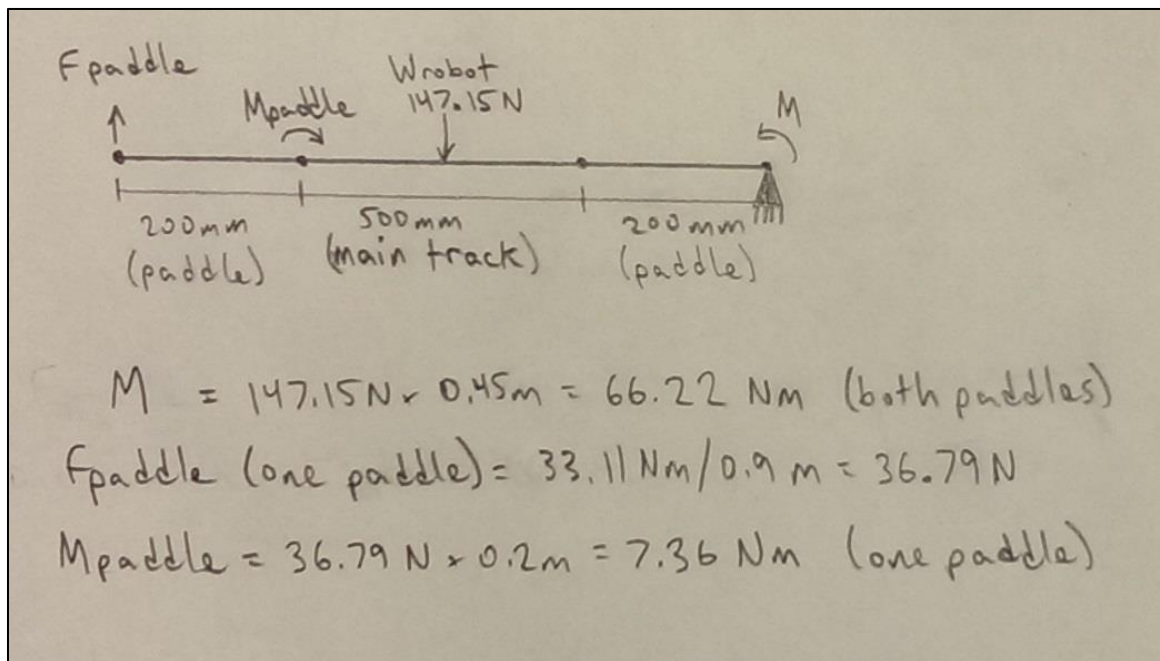 Fpaddle
Wrobot
Mpaddle
147.15N
M
200mm
(paddle)
500mm
(main track)
200mm
(paddle)
M = 147.15N × 0.45m = 66.22 Nm (both paddles)
Fpaddle (one paddle) = 33.11 Nm/0.9 m = 36.79 N
Mpaddle = 36.79 N × 0.2m = 7.36 Nm (one paddle)